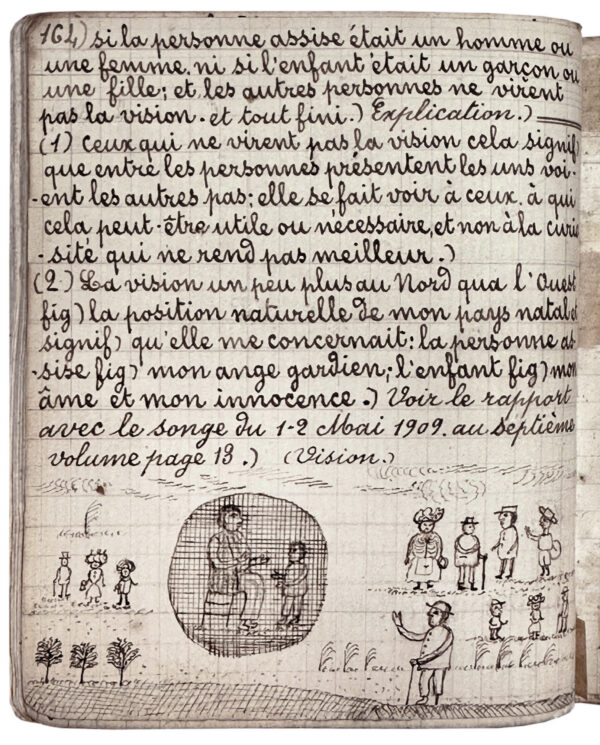 164) si la personne assise était un homme ou
une femme. ni si l'enfant était un garçon ou
une fille; et les autres personnes ne virent
pas la vision. et tout fini.) Explication.)
(1) Ceux qui ne virent pas la vision cela signif)
que entre les personnes présentent les uns voi-
-ent les autres pas: elle se fait voir à ceux. à qui
cela peut-être utile ou nécessaire, et non à la curio
-sité qui ne rend pas meilleur.)
(2) La vision un peu plus au Nord qua l'Ouest
fig) la position naturelle de mon pays natal et
signif) qu'elle me concernait: la personne as-
-sise fig) mon ange gardien; l'enfant fig) mon
âme et mon innocence.) Voir le rapport
avec le songe du 1-2 Mai 1909. au septième
volume page 13.) (Vision.)